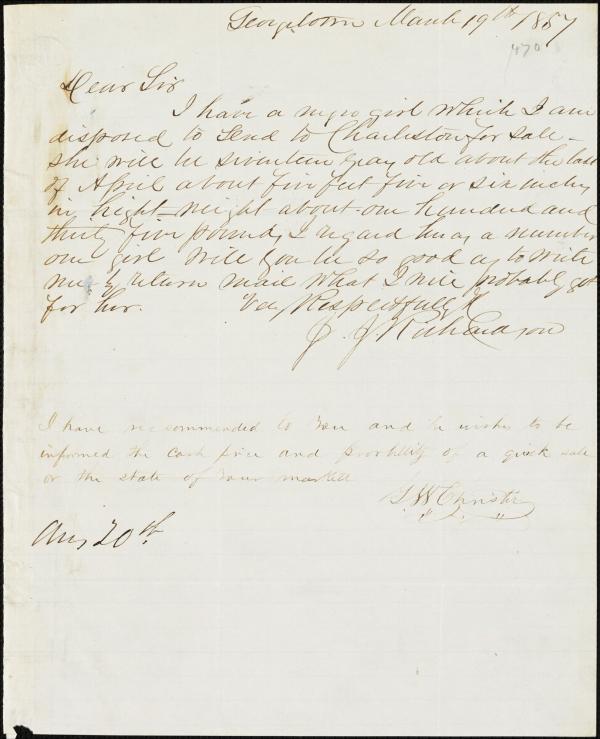 Georgetown March 19th 1857
470
Dear Sir
I have a negro girl which I am
disposed to send to Charleston for sale -
she will be seventeen years old about the last
of April about five feet five or six inches
in hight - weight about one hundred and
thirty five pounds, I regard her as a number
one girl will you be so good as to write
me by return mail what I will probably get
for her. Very Respectfully
J. J. Richardson
I have reccommended to you and he wishes to be
informed the cash price and probbility of a quick sale
or the state of your markett
Christie
Ans 20th